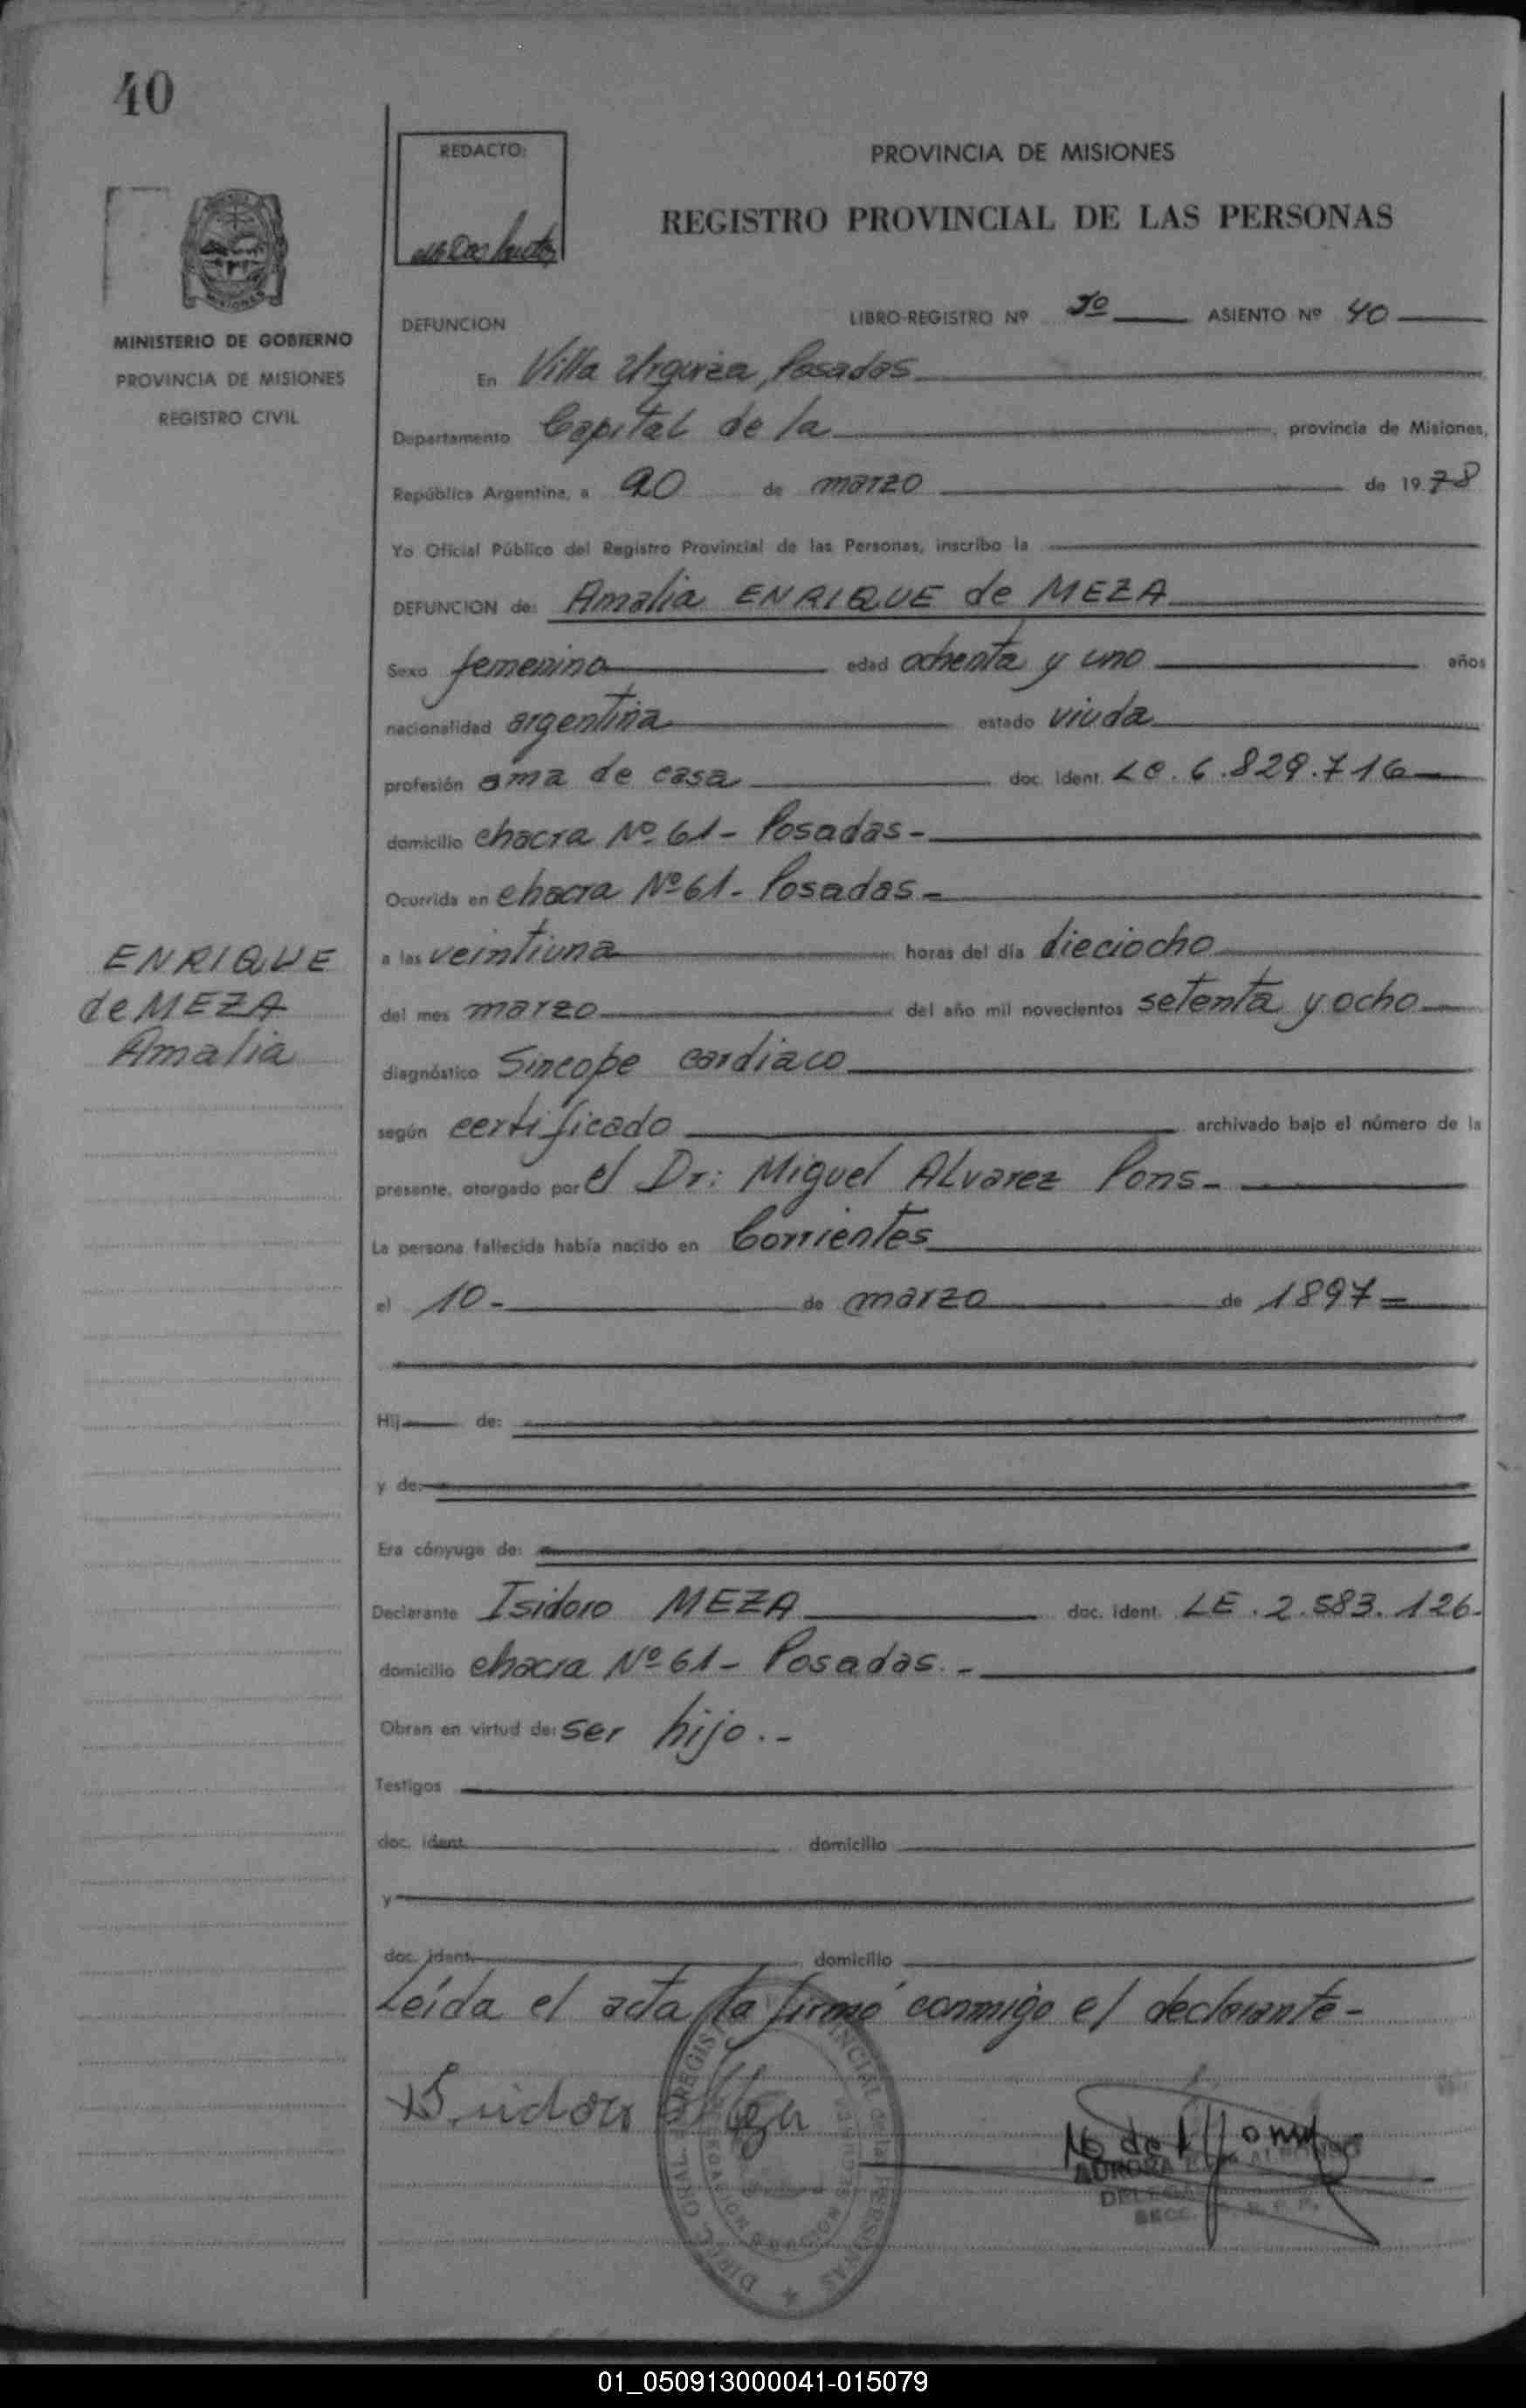 40
REDACTO:
PROVINCIA DE MISIONES
REGISTRO PROVINCIAL DE LAS PERSONAS
MISIONES
MINISTERIO DE GOBIERNO
PROVINCIA DE MISIONES
REGISTRO CIVIL
DEFUNCION LIBRO-REGISTRO Nº ASIENTO Nº 40
En Villa Urquiza, Posadas
Departamento Capital de la , provincia de Misiones,
República Argentina, a 20 de marzo de 1978
Yo Oficial Público del Registro Provincial de las Personas, inscribo la
DEFUNCION de: Amalia ENRIQUE de MEZA
Sexo femenino edad ochenta y uno años
nacionalidad argentina estado viuda
profesión ama de casa doc. ident. LC. 6.829.716
domicilio chacra Nº 61 - Posadas -
Ocurrida en chacra Nº 61 - Posadas -
a las veintiuna horas del día dieciocho
del mes marzo del año mil novecientos setenta y ocho
diagnóstico Sincope cardiaco
según certificado archivado bajo el número de la
presente, otorgado por el Dr: Miguel Alvarez Pons -
La persona fallecida había nacido en Corrientes
el 10 - de marzo de 1897 =
ENRIQUE
de MEZA
Amalia
Hij de:
y de:
Era cónyuge de:
Declarante Isidoro MEZA doc. ident. LE. 2.583.126.
domicilio chacra Nº 61 - Posadas. -
Obran en virtud de: ser hijo. -
Testigos
doc. ident. domicilio
y
doc. ident. domicilio
Leída el acta la firmó conmigo el declarante -
AURORA
01_050913000041-015079